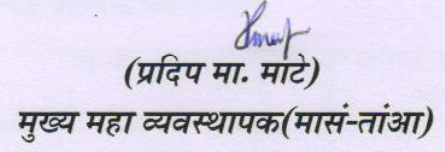 (प्रदिप मा. माटे)
मुख्य महा व्यवस्थापक(मासं-तांआ)